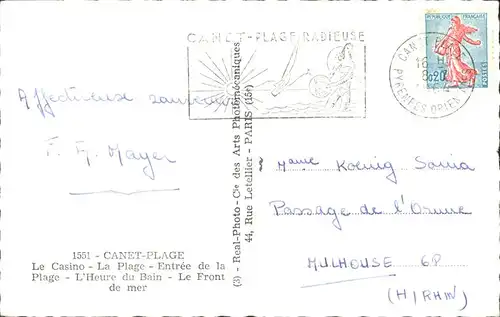 CANET-PLAGE RADIEUSE
REPUBLIQUE FRANÇAISE
0,20
POSTES
PYRENEES ORIENTALES
Affectueux souvenir
F. A. Mayer
Mame Koenig Sonia
Passage de l'Orme
MULHOUSE 68
(H! RHIN)
1551 - CANET-PLAGE
Le Casino - La Plage - Entrée de la
Plage - L'Heure du Bain - Le Front
de mer
(3) - Real-Photo - Cie des Arts Photomécaniques
44, Rue Letellier - PARIS (15e)